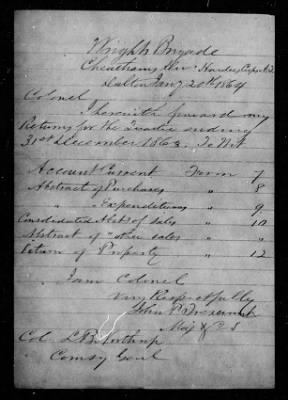 Wright's Brigade
Cheatham's Div: Hardee's Corps A.T.
Dalton Jany 20th 1864
Colonel
I herewith forward my
Returns for the Quarter ending
31st December 1863. To Wit
Account Current Form 7
Abstract of Purchases " 8
" Expenditures " 9
Consolidated Abst of Sales " 10
Abstract of " other sales " "
Return of Property " 12
I am Colonel
Very Respectfully
John P.
Maj & C S
Col. L B. Northrop
Comsy Genl